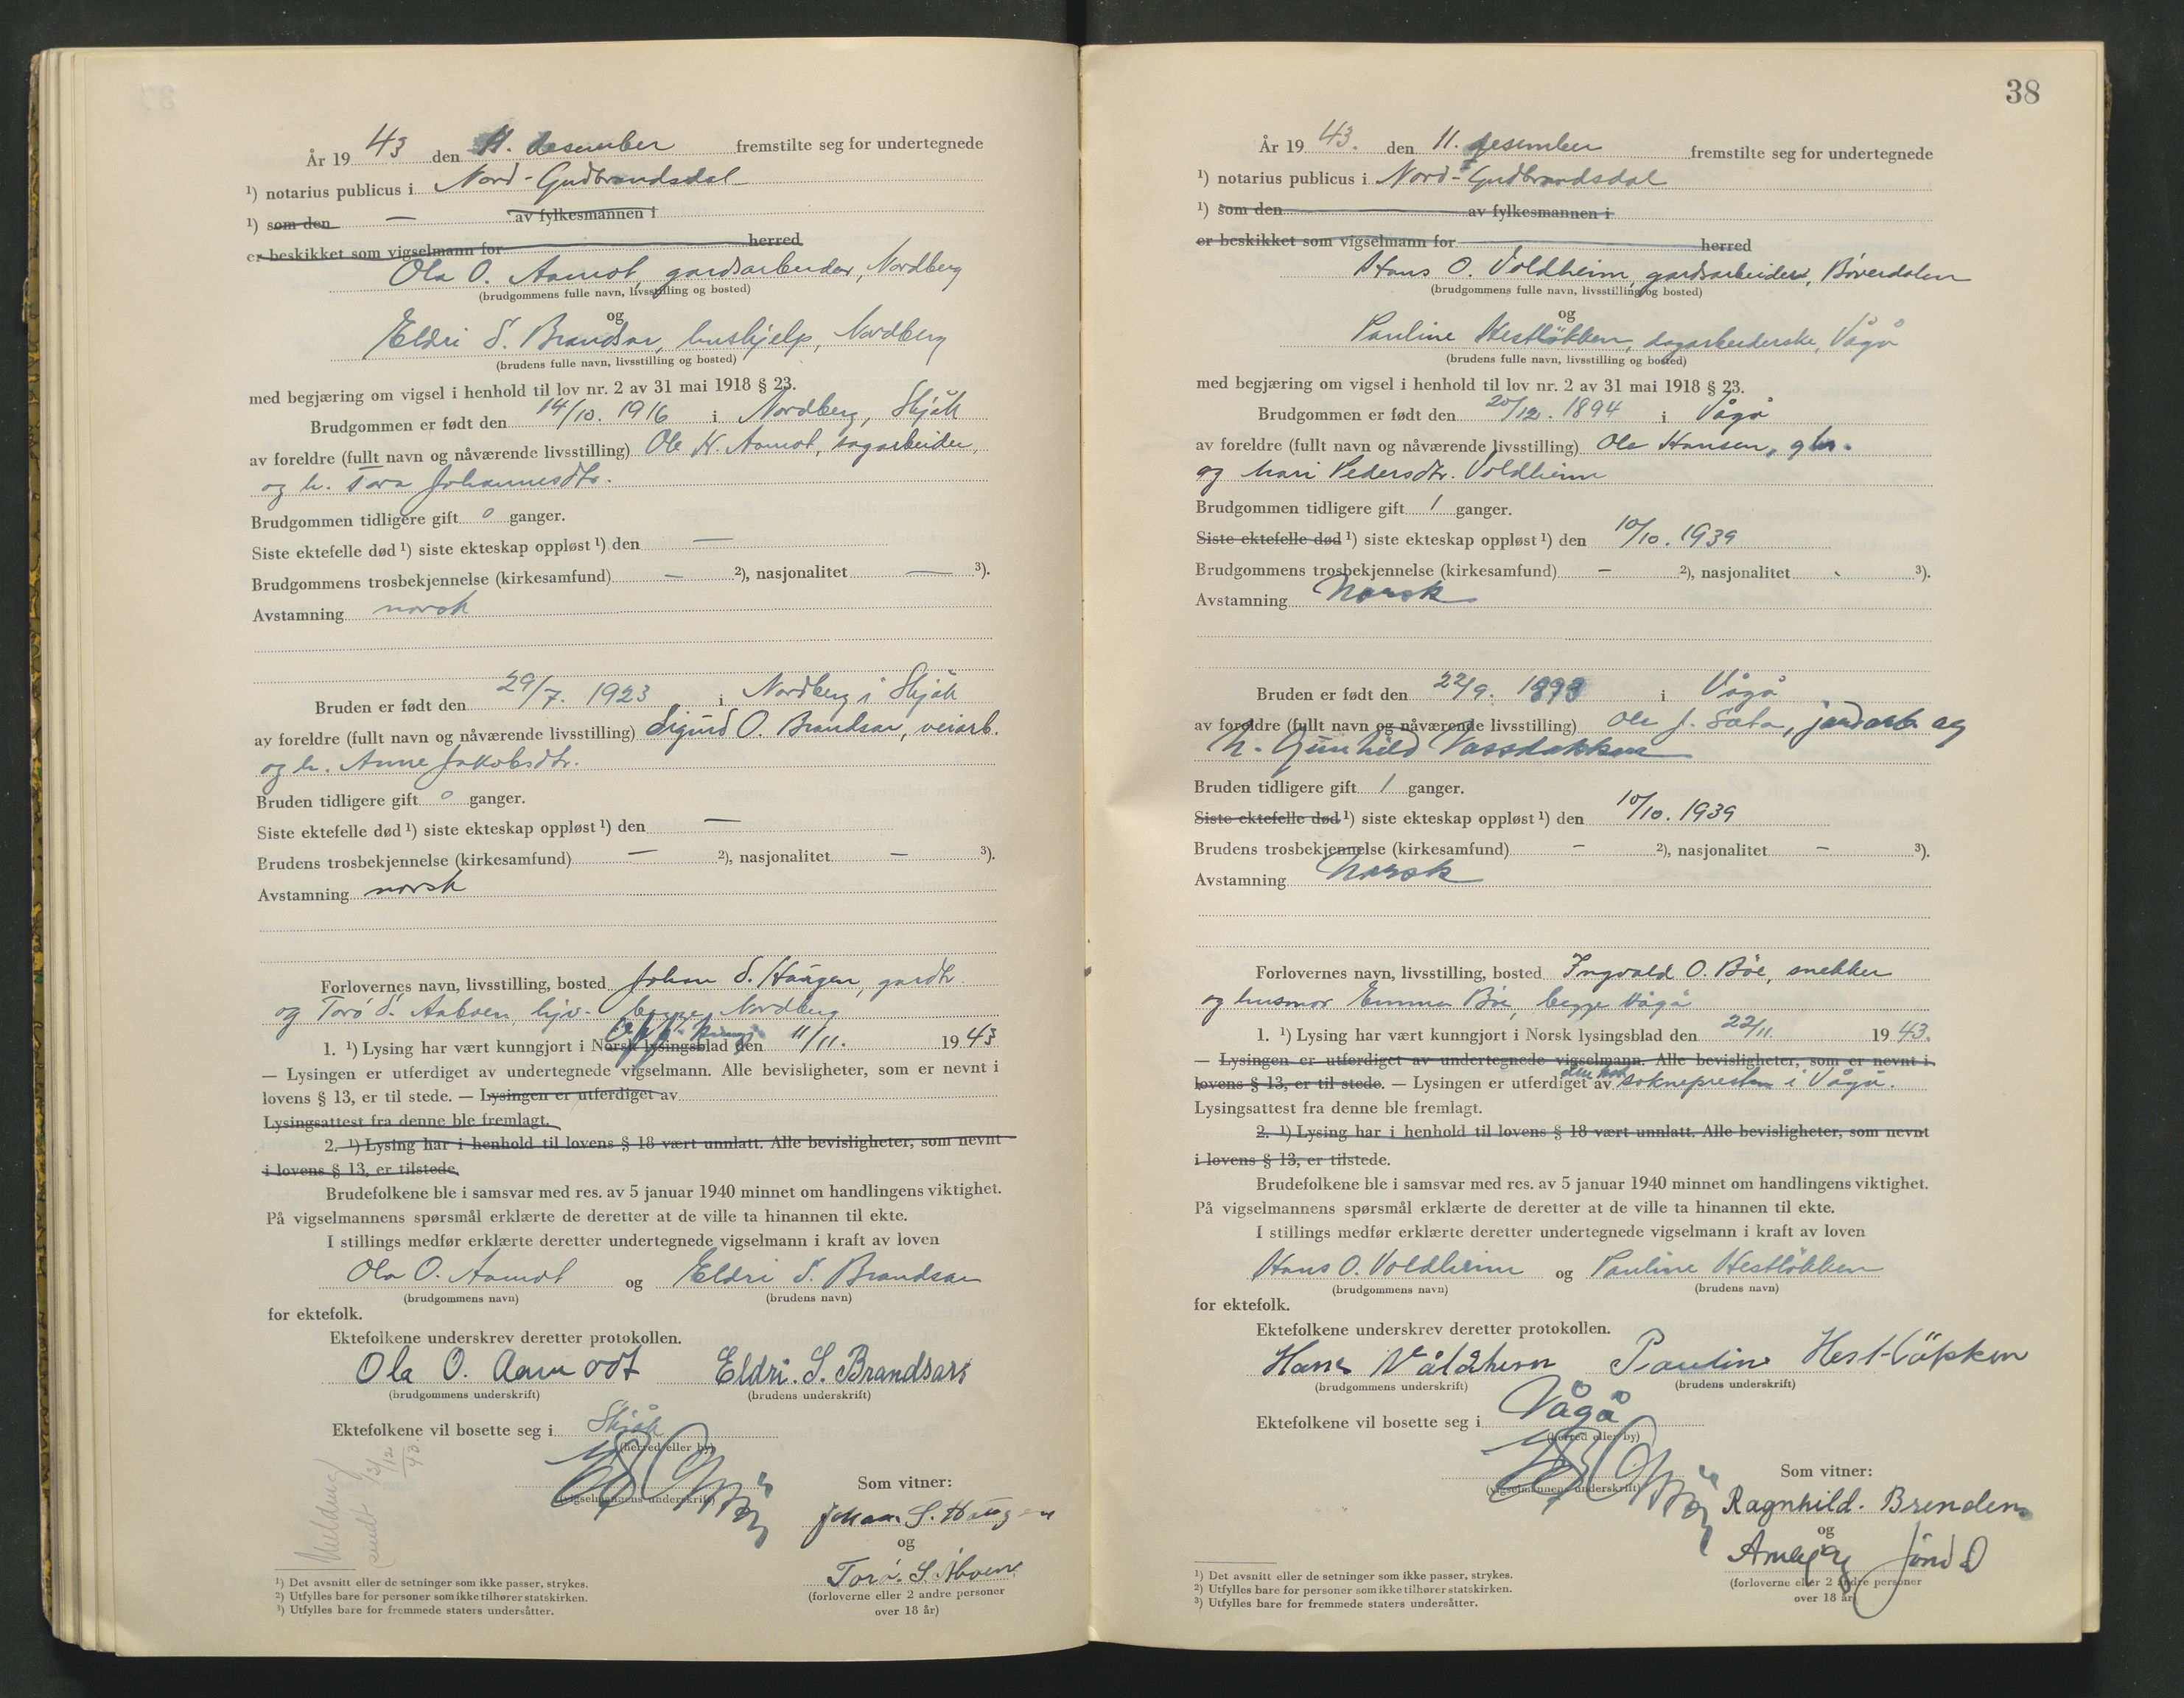 År 19 43 den 11. desember fremstilte seg for undertegnede
¹) notarius publicus i Nord-Gudbrandsdal
¹) som den — av fylkesmannen i
er beskikket som vigselmann for herred
Ola O. Aamot, gardsarbeider, Nordberg
(brudgommens fulle navn, livsstilling og bosted)
og
Eldri S. Brandsar, hushjelp, Nordberg
(brudens fulle navn, livsstilling og bosted)
med begjæring om vigsel i henhold til lov nr. 2 av 31 mai 1918 § 23.
Brudgommen er født den 14/10. 1916 i Nordberg, Skjåk
av foreldre (fullt navn og nåværende livsstilling) Ole K. Aamot, sagarbeider,
og h. Tora Johannesdtr.
Brudgommen tidligere gift 0 ganger.
Siste ektefelle død ¹) siste ekteskap oppløst ¹) den —
Brudgommens trosbekjennelse (kirkesamfund) — ²), nasjonalitet — ³).
Avstamning norsk
Bruden er født den 29/7. 1923 i Nordberg i Skjåk
av foreldre (fullt navn og nåværende livsstilling) Sigurd O. Brandsar, veiarb.
og h. Anne Jakobsdtr.
Bruden tidligere gift 0 ganger.
Siste ektefelle død ¹) siste ekteskap oppløst ¹) den —
Brudens trosbekjennelse (kirkesamfund) — ²), nasjonalitet — ³).
Avstamning norsk
Forlovernes navn, livsstilling, bosted Johan S. Haugen, gardbr.
og Toro S. begge Nordberg
1. ¹) Lysing har vært kunngjort i Norsk lysingsblad den 11/11. 19 43
— Lysingen er utferdiget av undertegnede vigselmann. Alle bevisligheter, som er nevnt i
lovens § 13, er til stede. — Lysingen er utferdiget av
Lysingsattest fra denne ble fremlagt.
2. ¹) Lysing har i henhold til lovens § 18 vært unnlatt. Alle bevisligheter, som nevnt
i lovens § 13, er tilstede.
Brudefolkene ble i samsvar med res. av 5 januar 1940 minnet om handlingens viktighet.
På vigselmannens spørsmål erklærte de deretter at de ville ta hinannen til ekte.
I stillings medfør erklærte deretter undertegnede vigselmann i kraft av loven
Ola O. Aamot og Eldri S. Brandsar
(brudgommens navn) (brudens navn)
for ektefolk.
Ektefolkene underskrev deretter protokollen.
Ola O. Aamodt Eldri. S. Brandsar
(brudgommens underskrift) (brudens underskrift)
Ektefolkene vil bosette seg i Skjåk
(herred eller by)
Melding sendt 12/12 43.
(vigselmannens underskrift)
Som vitner:
Johan S. Haugen
og
Toro. S.
(forloverne eller 2 andre personer
over 18 år)
¹) Det avsnitt eller de setninger som ikke passer, strykes.
²) Utfylles bare for personer som ikke tilhører statskirken.
³) Utfylles bare for fremmede staters undersåtter.
38
År 19 43. den 11. desember fremstilte seg for undertegnede
¹) notarius publicus i Nord-Gudbrandsdal
¹) som den av fylkesmannen i
er beskikket som vigselmann for herred
Hans O. Voldheim, gardsarbeider, Bøverdalen
(brudgommens fulle navn, livsstilling og bosted)
og
Pauline Hestløkken, dagarbeiderske, Vågå
(brudens fulle navn, livsstilling og bosted)
med begjæring om vigsel i henhold til lov nr. 2 av 31 mai 1918 § 23.
Brudgommen er født den 20/12. 1894 i Vågå
av foreldre (fullt navn og nåværende livsstilling) Ole Hansen, gbr.
og Mari Pedersdtr. Voldheim
Brudgommen tidligere gift 1 ganger.
Siste ektefelle død ¹) siste ekteskap oppløst ¹) den 10/10. 1939
Brudgommens trosbekjennelse (kirkesamfund) — ²), nasjonalitet ³).
Avstamning Norsk
Bruden er født den 22/9. 1893 i Vågå
av foreldre (fullt navn og nåværende livsstilling) Ole J. Sæta, jordarb. og
h. Gunhild
Bruden tidligere gift 1 ganger.
Siste ektefelle død ¹) siste ekteskap oppløst ¹) den 10/10. 1939
Brudens trosbekjennelse (kirkesamfund) — ²), nasjonalitet — ³).
Avstamning Norsk
Forlovernes navn, livsstilling, bosted Ingvald O. Böe, snekker
og husmor Emma Böe, begge Vågå
1. ¹) Lysing har vært kunngjort i Norsk lysingsblad den 22/11. 19 43.
— Lysingen er utferdiget av undertegnede vigselmann. Alle bevisligheter, som er nevnt i
lovens § 13, er til stede. — Lysingen er utferdiget av sokneprestem i Vågå.
Lysingsattest fra denne ble fremlagt.
2. ¹) Lysing har i henhold til lovens § 18 vært unnlatt. Alle bevisligheter, som nevnt
i lovens § 13, er tilstede.
Brudefolkene ble i samsvar med res. av 5 januar 1940 minnet om handlingens viktighet.
På vigselmannens spørsmål erklærte de deretter at de ville ta hinannen til ekte.
I stillings medfør erklærte deretter undertegnede vigselmann i kraft av loven
Hans O. Voldheim og Pauline Hestløkken
(brudgommens navn) (brudens navn)
for ektefolk.
Ektefolkene underskrev deretter protokollen.
Hans Våldhem Paulin Hestlöpken
(brudgommens underskrift) (brudens underskrift)
Ektefolkene vil bosette seg i Vågå
(herred eller by)
(vigselmannens underskrift)
Som vitner:
Ragnhild. Brenden
og
(forloverne eller 2 andre personer
over 18 år)
¹) Det avsnitt eller de setninger som ikke passer, strykes.
²) Utfylles bare for personer som ikke tilhører statskirken.
³) Utfylles bare for fremmede staters undersåtter.